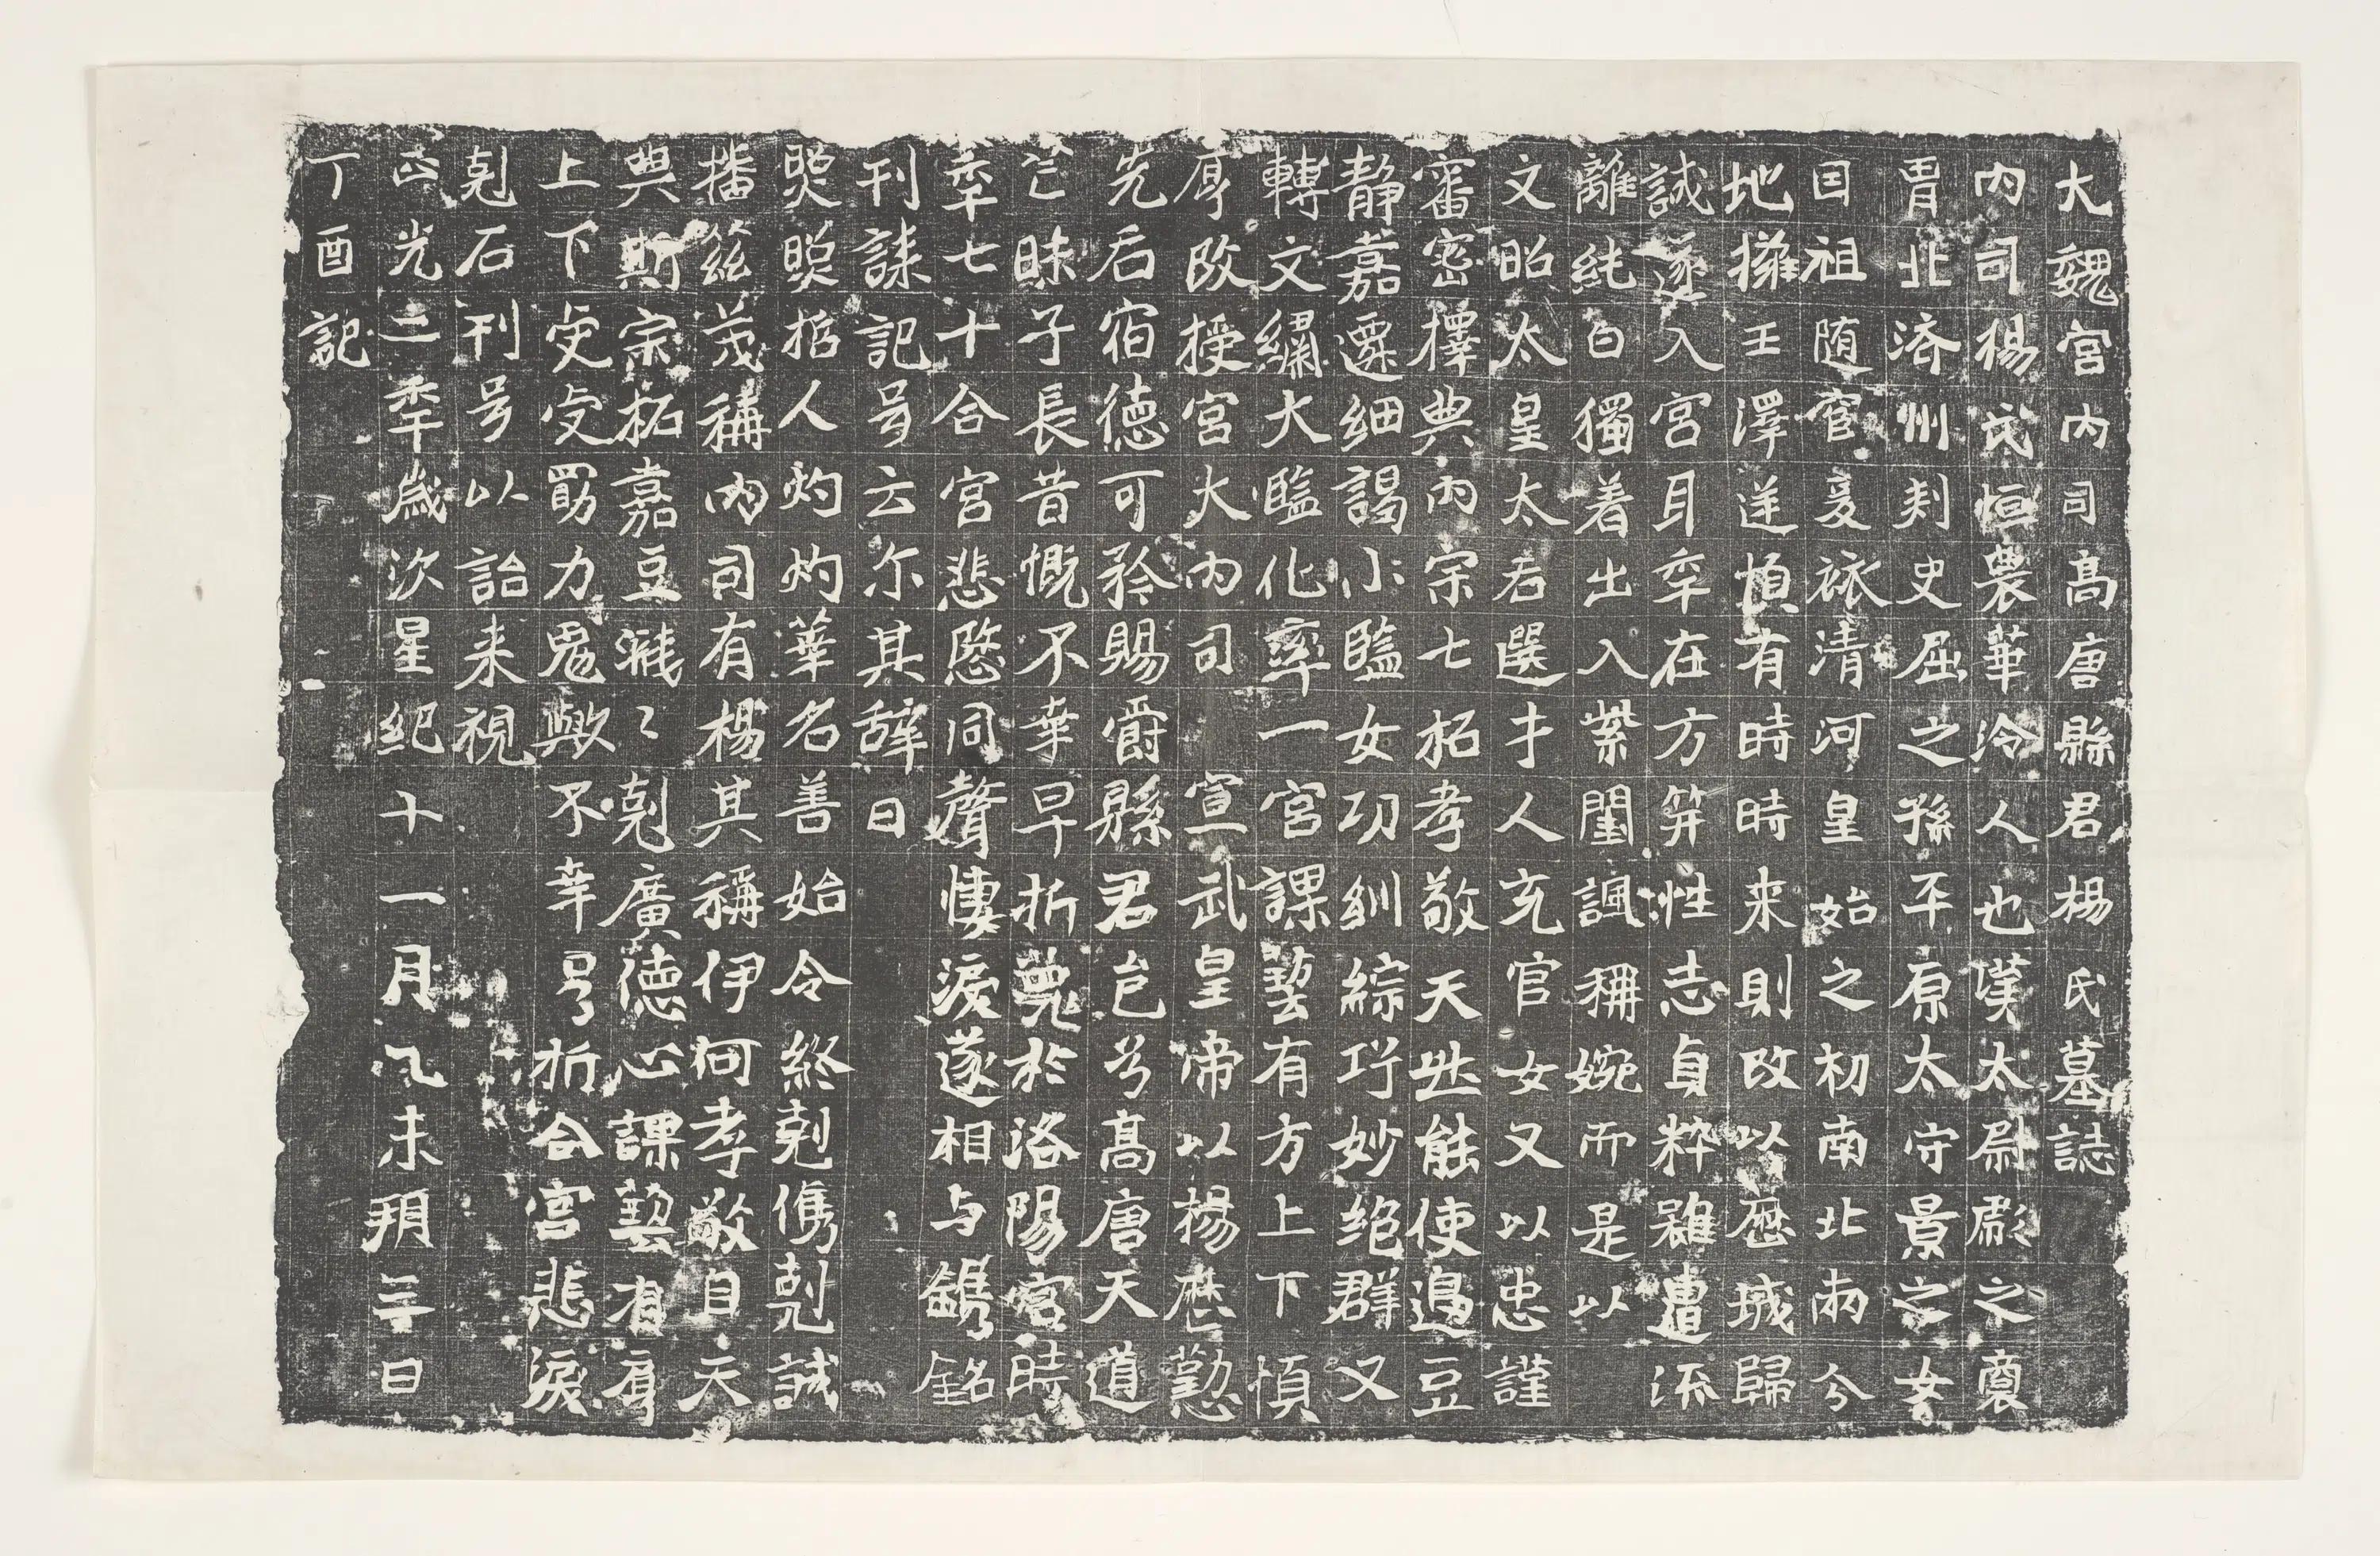 大魏宮内司高唐縣君楊氏墓誌
内司楊氏恒農華泠人也漢太尉彪之裔
胄北济州刾史屈之孫平原太守景之女
因祖随宦爰旅清河皇始之初南北兩分
地擁王澤逆順有時時来則改以歷城歸
誠遂入宮耳年在方笄性志貞粹雖遭流
離純白獨着出入紫閨諷稱婉而是以
文昭太皇太后選才人充官女又以忠謹
審密擇典内宗七祏孝敬天然能使邊豆
静嘉遷細謁小監女功紃綜巧妙絶群又
轉文繡大監化率一宮課藝有方上下順
厚改授宮大内司宣武皇帝以楊歷懃
先后宿德可矜賜爵縣君邑兮高唐天道
茫昧子長昔慨不幸早折薨於洛陽宮時
年七十合宮悲慜同聲悽淚遂相与鐫銘
刊誄記号云尓其辞曰
煛煛招人灼灼華名善始令終剋儁剋誠
播兹茂稱内司有楊其稱伊何孝敬自天
典斯宗祏嘉豆濈〻剋廣德心課藝有肩
上下受受勖力鬼歟不幸号折合宮悲淚
剋石刊号以詒来視
正光二年歲次星紀十一月乙未朔三日
丁酉記